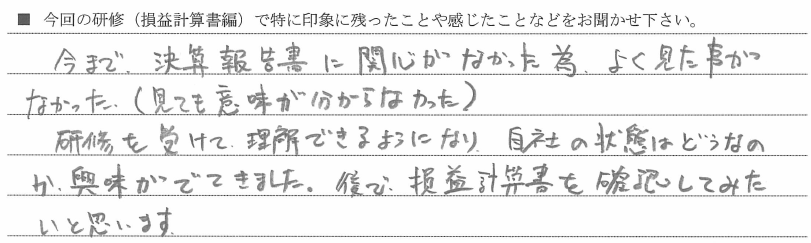 ■ 今回の研修（損益計算書編）で特に印象に残ったことや感じたことなどをお聞かせ下さい。
今まで、決算報告書に関心がなかった為、よく見た事が
なかった。（見ても意味が分からなかった）
研修を受けて、理解できるようになり、自社の状態はどうなの
か、興味がでてきました。後で、損益計算書を確認してみた
いと思います。